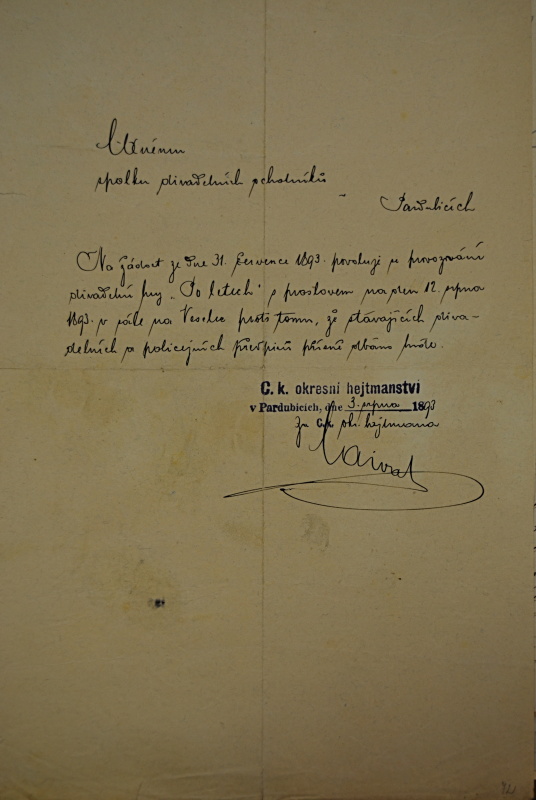 Ctěnému
spolku divadelních ochotníků
Pardubicích
Na žádost ze dne 31. července 1893. povoluji provozování
divadelní hry „Po letech“ s proslovem na den 12. srpna
1893. v sále na Veselce proti tomu, že stávajících diva-
delních a policejních předpisů přísně dbáno bude.
C. k. okresní hejtmanství
v Pardubicích, dne 3. srpna 1893
za c. k. okr. hejtmana